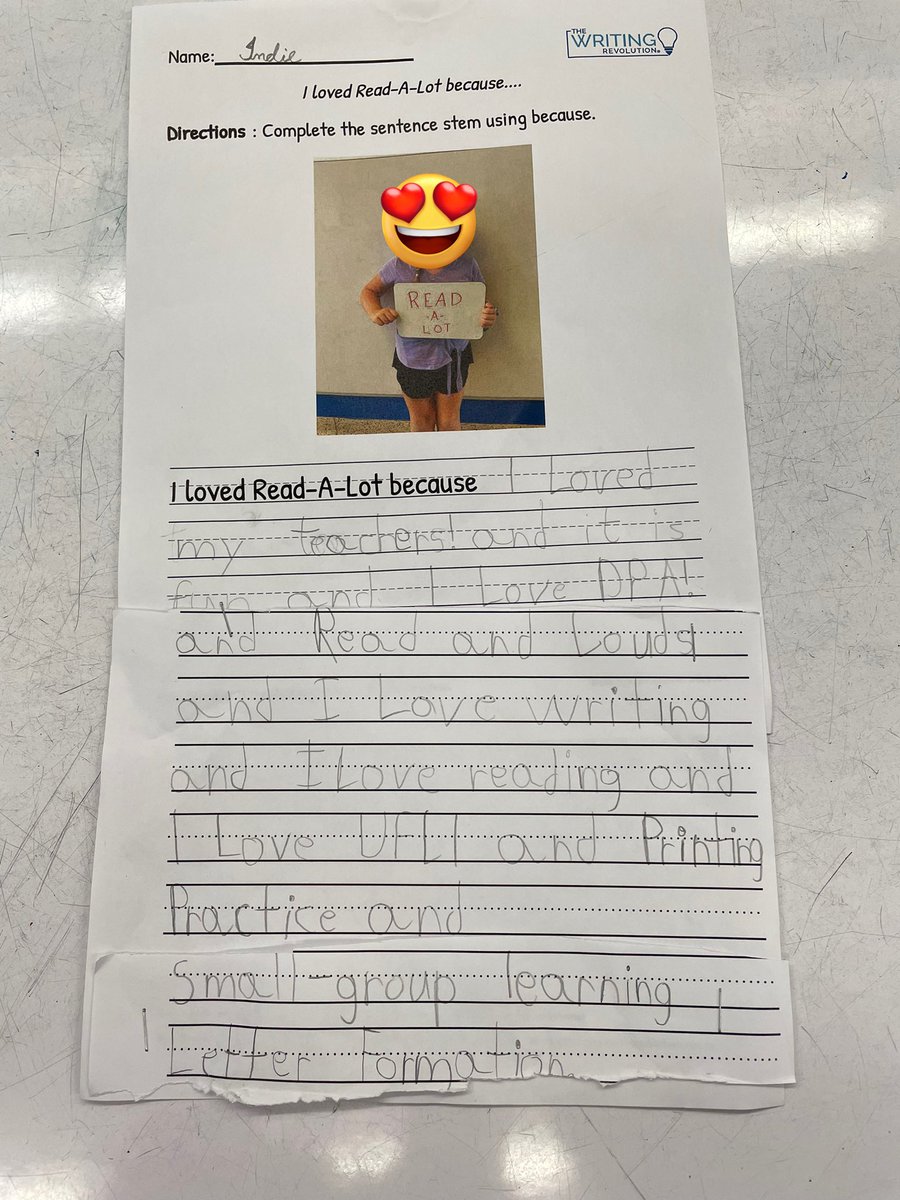 Name: Indie
THE
WRITING
REVOLUTION®
I loved Read-A-Lot because....
Directions : Complete the sentence stem using because.
READ
-A-
LOT
I loved Read-A-Lot because I Loved
my teachers! and it is
fun and I Love DPA!
and Read and Louds
and I Love writing
and I Love reading and
I Love UFLI and Printing
Practice and
Small-group learning
Letter Formation.